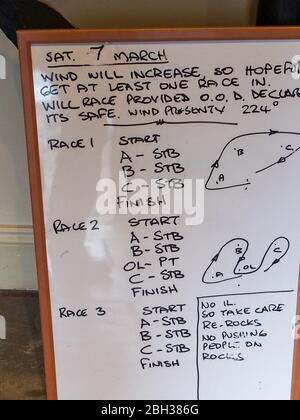 SAT. 7 MARCH
WIND WILL INCREASE, SO HOPEFU
GET AT LEAST ONE RACE IN.
WILL RACE PROVIDED O.O.D. DECLAR
ITS SAFE. WIND PRESENTY 224°
RACE 1 START
A - STB
B - STB
C - STB
FINISH
A
B
C
RACE 2 START
A - STB
B - STB
OL - PT
C - STB
FINISH
A
B
OL
C
RACE 3 START
A - STB
B - STB
C - STB
FINISH
NO IL.
SO TAKE CARE
RE-ROCKS
NO PUSHING
PEOPLE ON
ROCKS
alamy
Image ID: 2BH386G
www.alamy.com